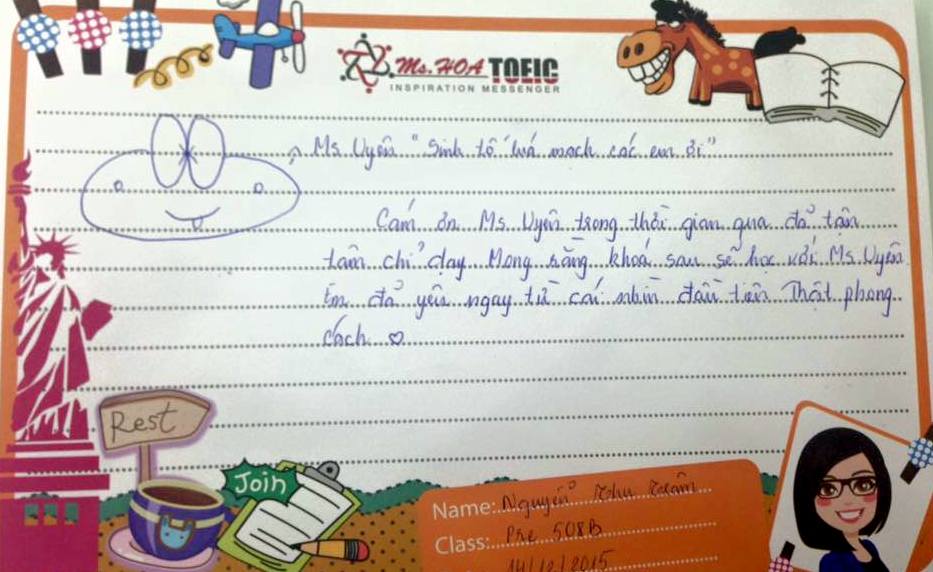 Ms. HOA TOEIC
INSPIRATION MESSENGER
Ms Uyên "Sinh tố lúa mạch các em ơi"
Cảm ơn Ms. Uyên trong thời gian qua đã tận
tâm chỉ dạy. Mong rằng khoá sau sẽ học với Ms Uyên
Em đã yêu ngay từ cái nhìn đầu tiên. Thật phong
cách ♡
Rest
Join
Name: Nguyễn Thu Trâm
Class: Pre 508B
14/12/2015